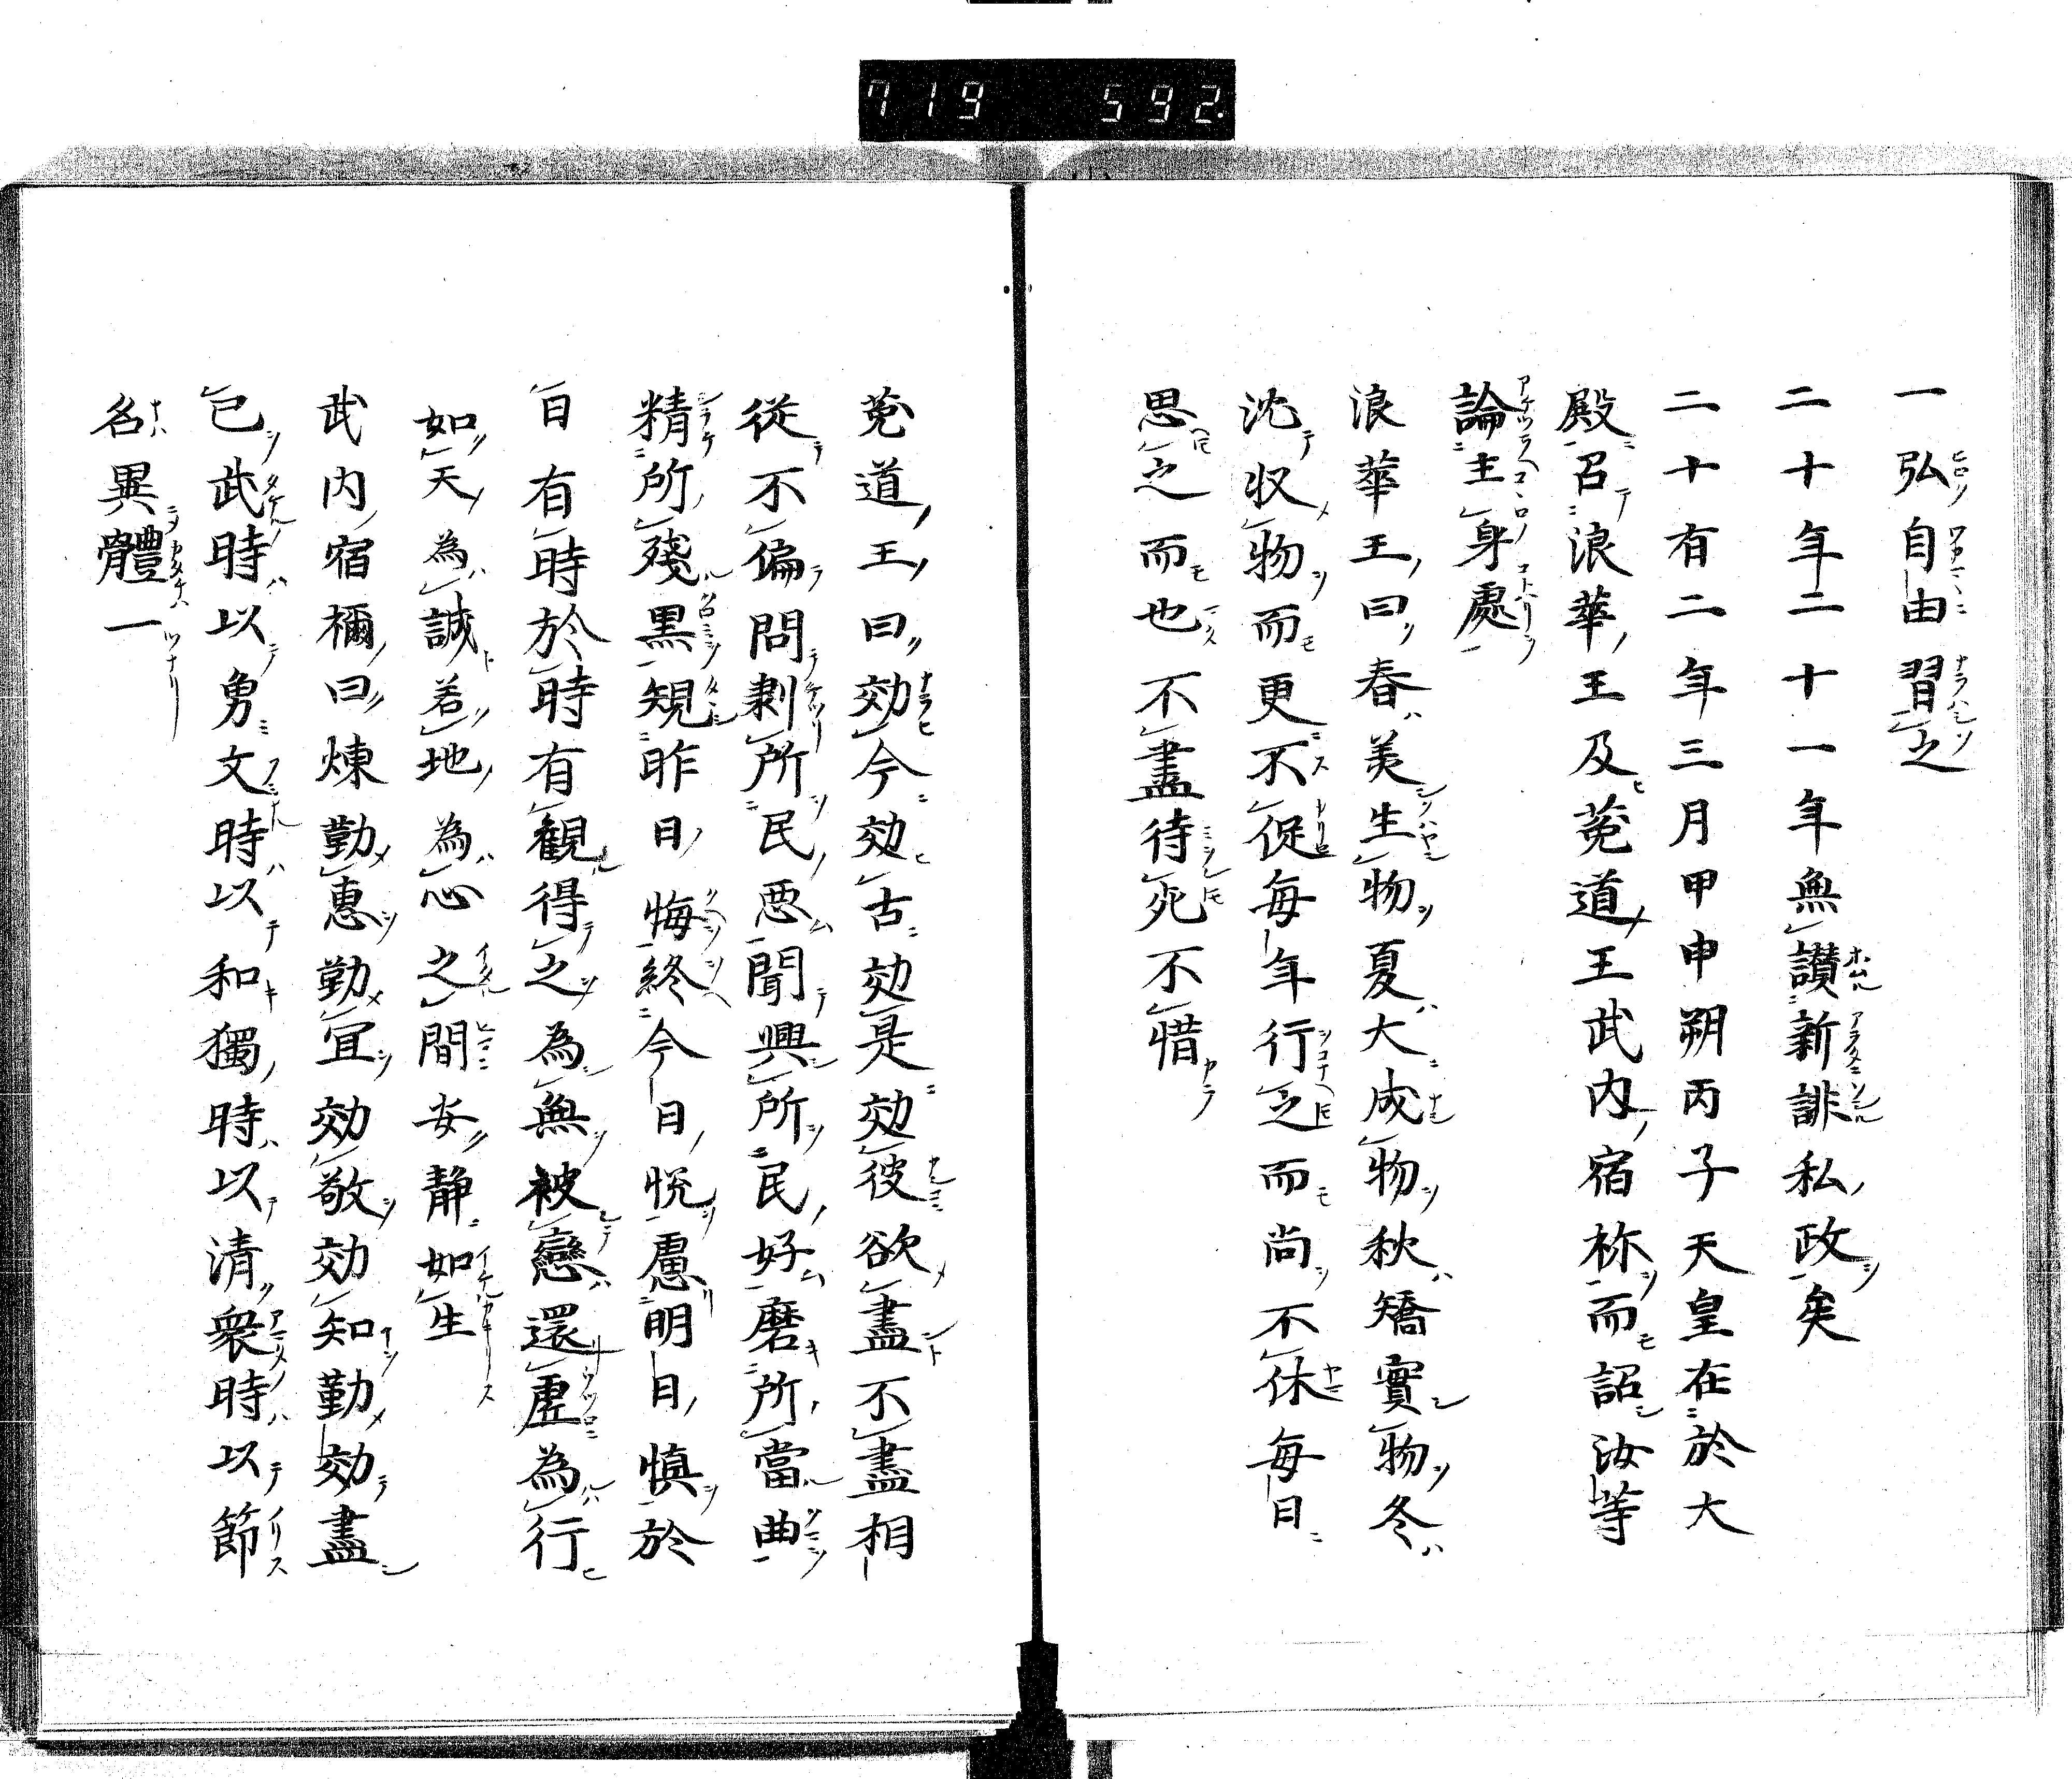 719 592.
一弘自由習之
二十年二十一年無讃新誹私政矣
二十有二年三月甲申朔丙子天皇在於大
殿召浪華王及莵道王武内宿祢而詔汝等
論主身處
浪華王曰春美生物夏大成物秋矯實物冬
沈収物而更不促毎年行之而尚不休毎日
思之而也不盡待死不惜
莵道王曰効今効古効是効彼欲盡不盡相
從不偏問剥所民惡聞興所民好磨所當曲
精所殘黒規昨日悔終今日悦慮明日慎於
日有時於時有觀得之為無被戀還虚為行
如天為誠若地為心之間安静如生
武内宿禰曰煉勤惠勤宜効敬効知勤効盡
已武時以勇文時以和獨時以清衆時以節
名異體一